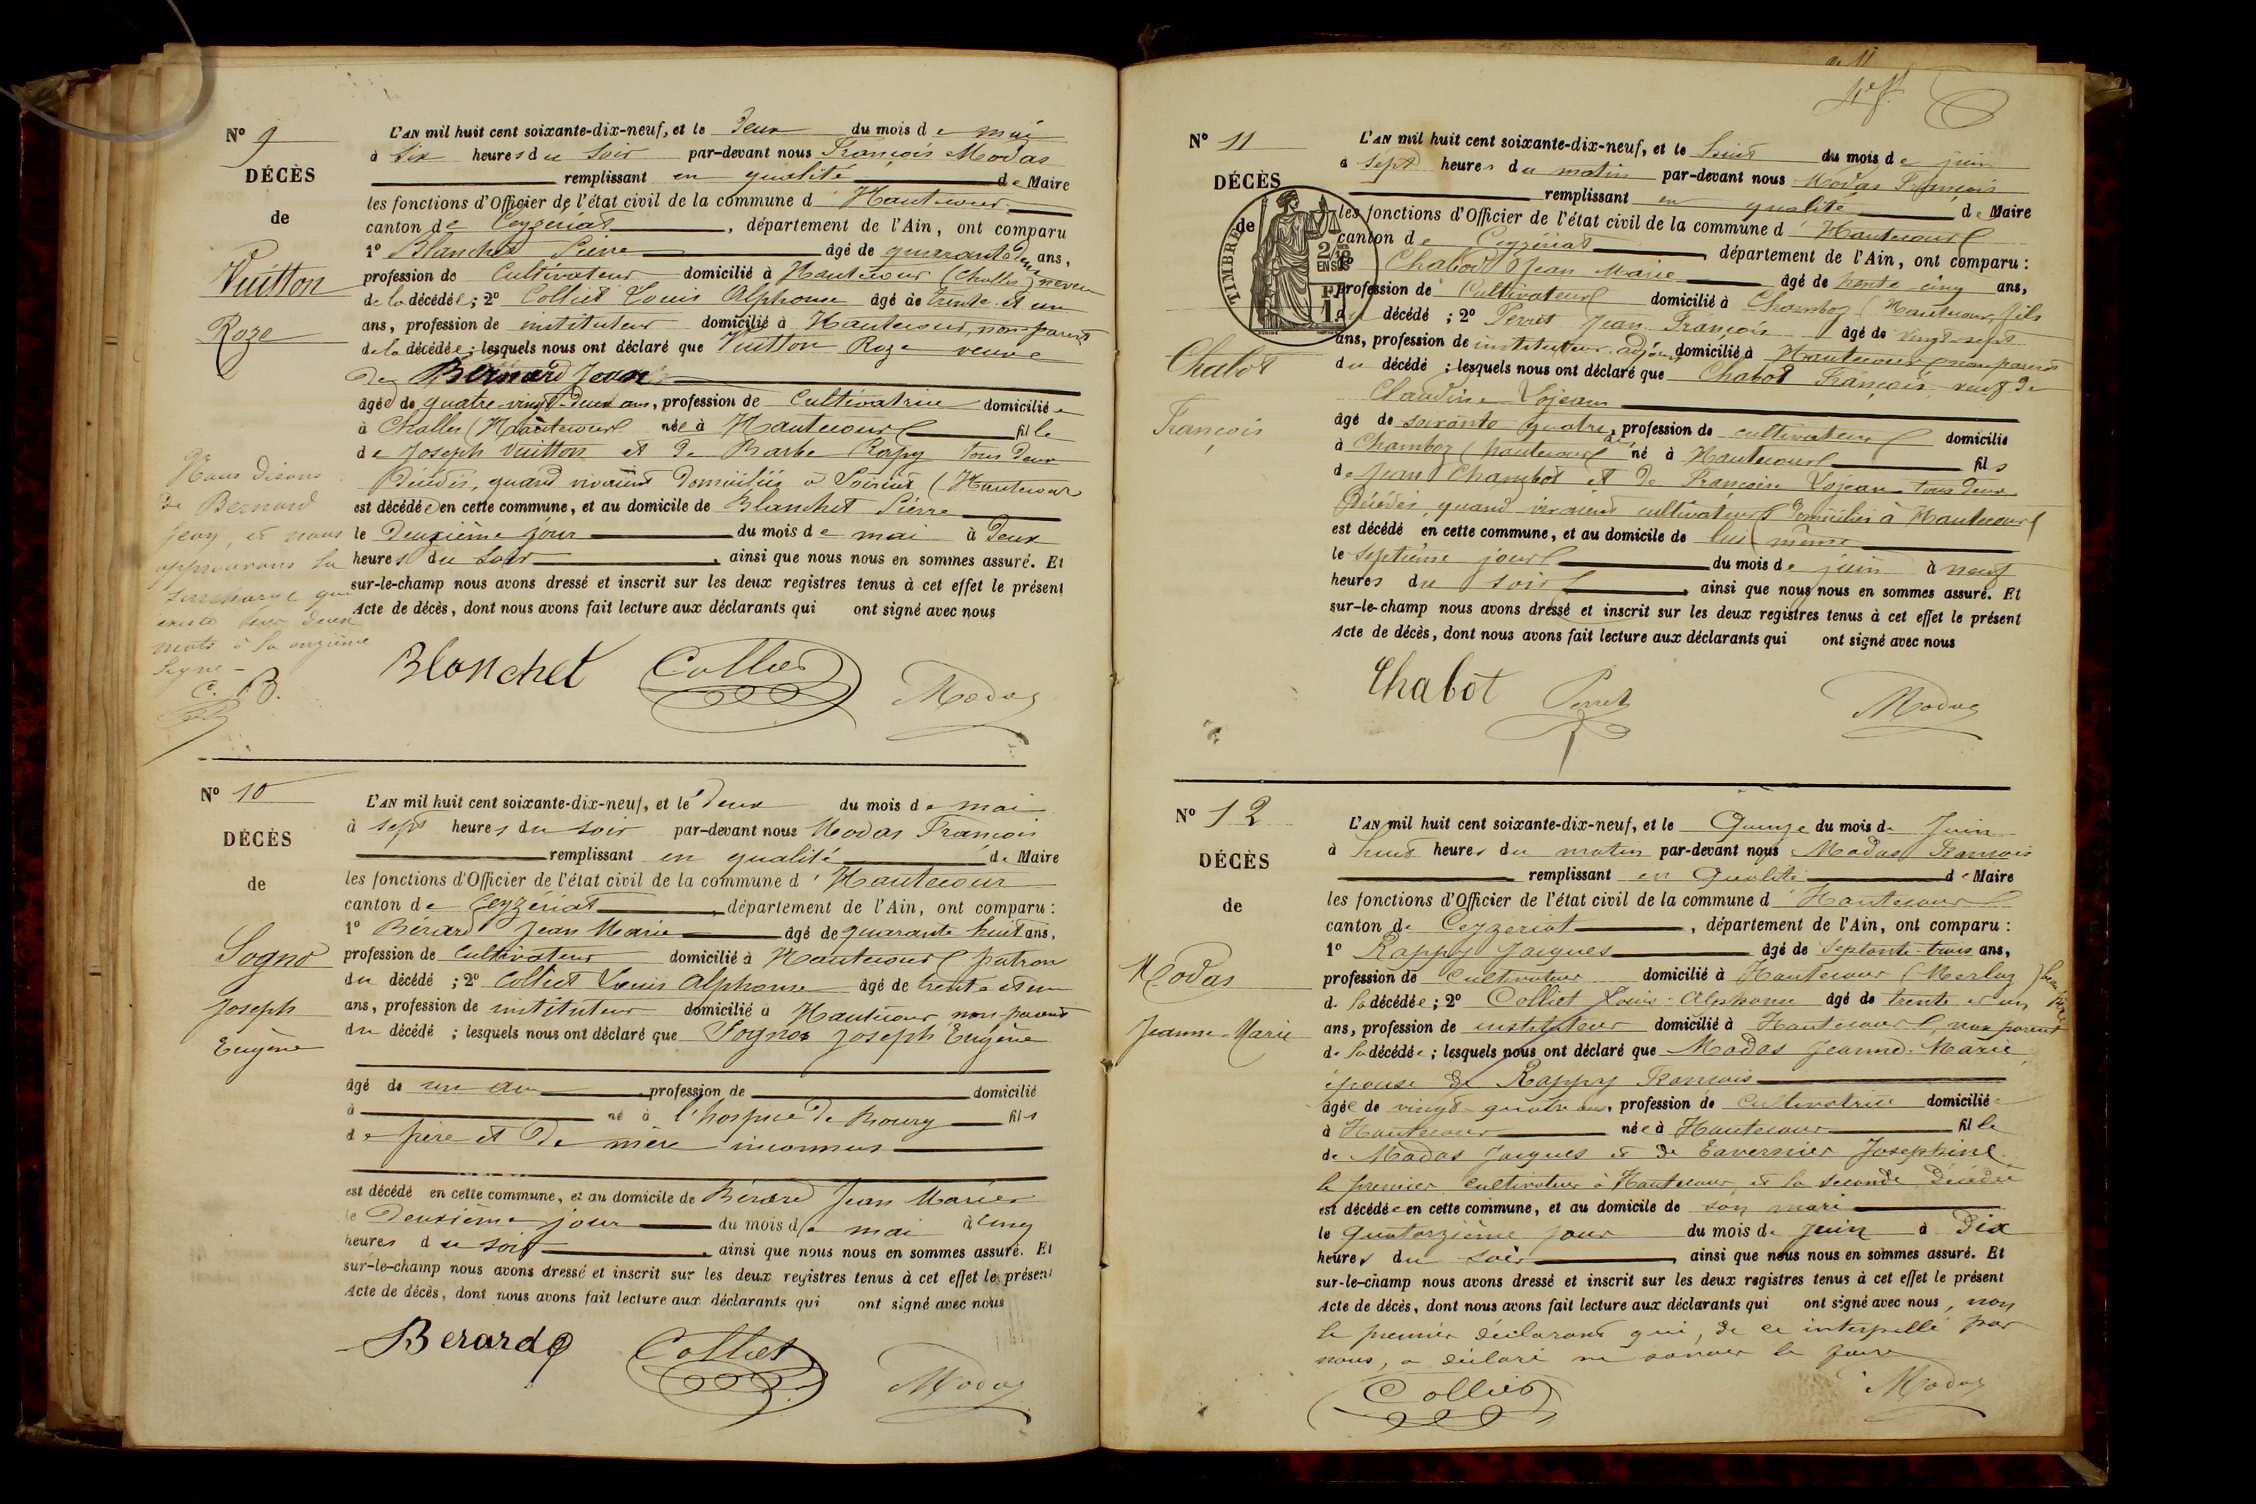 N° 9
DÉCÈS
de
Vuitton
Roze
L'AN mil huit cent soixante-dix-neuf, et le deux du mois de mai
à six heures du soir par-devant nous François Modas
remplissant en qualité de Maire
les fonctions d'Officier de l'état civil de la commune d'Hautecour
canton de Ceyzériat, département de l'Ain, ont comparu
1° Blanchet Pierre âgé de quarante deux ans,
profession de Cultivateur domicilié à Hautecour (Challes) neveu
de la décédée; 2° Colliet Louis Alphonse âgé de trente et un
ans, profession de instituteur domicilié à Hautecour, non parent
de la décédée; lesquels nous ont déclaré que Vuitton Roze veuve
de Bernard Jean
âgée de quatre-vingt-deux ans, profession de Cultivatrice domiciliée
à Challes (Hautecour née à Hautecour fille
de Joseph Vuitton et de Barbe Rapy tous deux
Décédés, quand vivaient domiciliés à (Hautecour
est décédée en cette commune, et au domicile de Blanchet Pierre
le Deuxième jour du mois de mai à deux
heures du soir, ainsi que nous nous en sommes assuré. Et
sur-le-champ nous avons dressé et inscrit sur les deux registres tenus à cet effet le présent
Acte de décès, dont nous avons fait lecture aux déclarants qui ont signé avec nous
Nous disons
de Bernard
Jean, et nous
approuvons la
surcharge qui
existe deux
mots à la onzième
ligne
C. B.
Blanchet Colliet Modas
N° 10
DÉCÈS
de
Sogno
Joseph
Eugène
L'AN mil huit cent soixante-dix-neuf, et le deux du mois de mai
à sept heures du soir par-devant nous Modas François
remplissant en qualité de Maire
les fonctions d'Officier de l'état civil de la commune d'Hautecour
canton de Ceyzériat, département de l'Ain, ont comparu:
1° Bérard Jean Marie âgé de quarante huit ans,
profession de cultivateur domicilié à Hautecour patron
du décédé; 2° Colliet Louis Alphonse âgé de trente et un
ans, profession de instituteur domicilié à Hautecour, non parent
du décédé; lesquels nous ont déclaré que Sogno Joseph Eugène
âgé de un an profession de domicilié
à né à l'hospice de fils
de père et de mère inconnus
est décédé en cette commune, et au domicile de Bérard Jean Marie
le Deuxième jour du mois de mai à cinq
heures du soir, ainsi que nous nous en sommes assuré. Et
sur-le-champ nous avons dressé et inscrit sur les deux registres tenus à cet effet le présent
Acte de décès, dont nous avons fait lecture aux déclarants qui ont signé avec nous
Berard Colliet Modas
4e f.
N° 11
DÉCÈS
de
TIMBRE
Chabot
François
L'AN mil huit cent soixante-dix-neuf, et le huit du mois de juin
à sept heures du matin par-devant nous Modas François
remplissant en qualité de Maire
les fonctions d'Officier de l'état civil de la commune d'Hautecour
canton de Ceyzériat, département de l'Ain, ont comparu:
1° Chabot Jean Marie âgé de trente cinq ans,
profession de Cultivateur domicilié à Chamboz (Hautecour, fils
du décédé; 2° Perret Jean François âgé de vingt-sept
ans, profession de instituteur adjoint domicilié à Hautecour, non parent
du décédé; lesquels nous ont déclaré que Chabot François veuf de
Claudine Lojean
âgé de soixante quatre, profession de cultivateur domicilié
à Chamboz (hautecour né à Hautecour fils
de Jean Chambot et de Françoise Lojean tous deux
Décédés, quand vivaient cultivateurs domiciliés à Hautecour
est décédé en cette commune, et au domicile de lui même
le septième jour du mois de juin à neuf
heures du soir, ainsi que nous nous en sommes assuré. Et
sur-le-champ nous avons dressé et inscrit sur les deux registres tenus à cet effet le présent
Acte de décès, dont nous avons fait lecture aux déclarants qui ont signé avec nous
Chabot Perret Modas
N° 12
DÉCÈS
de
Modas
Jeanne-Marie
L'AN mil huit cent soixante-dix-neuf, et le Quinze du mois de Juin
à huit heures du matin par-devant nous Modas François
remplissant en Qualité de Maire
les fonctions d'Officier de l'état civil de la commune d'Hautecour
canton de Ceyzeriat, département de l'Ain, ont comparu:
1° Rappy Jacques âgé de septante-trois ans,
profession de Cultivateur domicilié à Hautecour (Merloz) beau père
de la décédée; 2° Colliet Louis-Alphonse âgé de trente et un
ans, profession de instituteur domicilié à Hautecour, non parent
de la décédée; lesquels nous ont déclaré que Modas Jeanne-Marie,
épouse de Rappy François
âgée de vingt-quatre ans, profession de Cultivatrice domiciliée
à Hautecour née à Hautecour fille
de Modas Jacques et de Tavernier Josephine
le premier cultivateur à Hautecour, et la seconde décédée
est décédée en cette commune, et au domicile de son mari
le Quatorzième jour du mois de Juin à Dix
heures du soir, ainsi que nous nous en sommes assuré. Et
sur-le-champ nous avons dressé et inscrit sur les deux registres tenus à cet effet le présent
Acte de décès, dont nous avons fait lecture aux déclarants qui ont signé avec nous, non
le premier déclarant qui, de ce interpellé par
nous, a déclaré ne savoir le faire
Colliet Modas